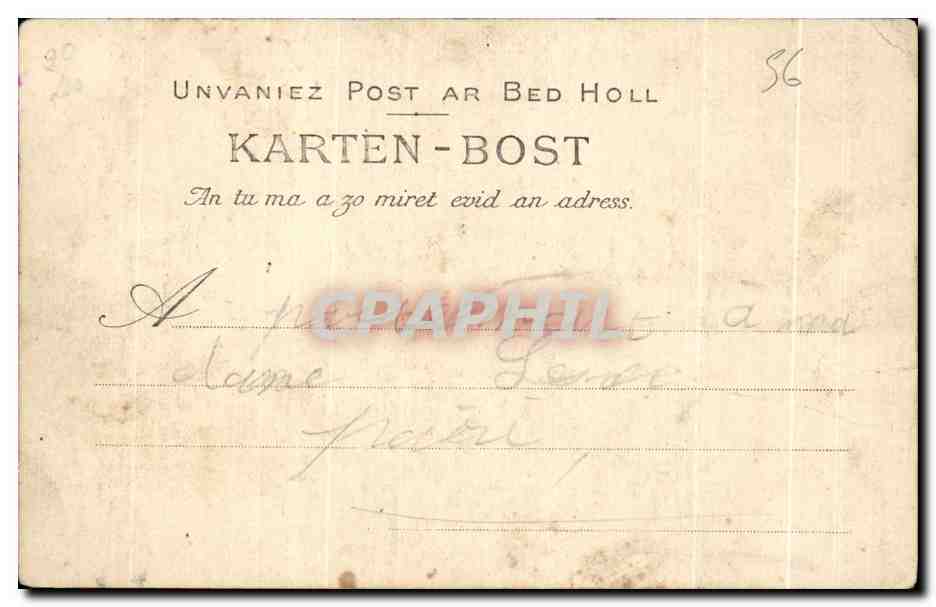 56
UNVANIEZ POST AR BED HOLL
KARTEN-BOST
An tu ma a zo miret evid an adress.
A à mad
dame
CPAPHIL